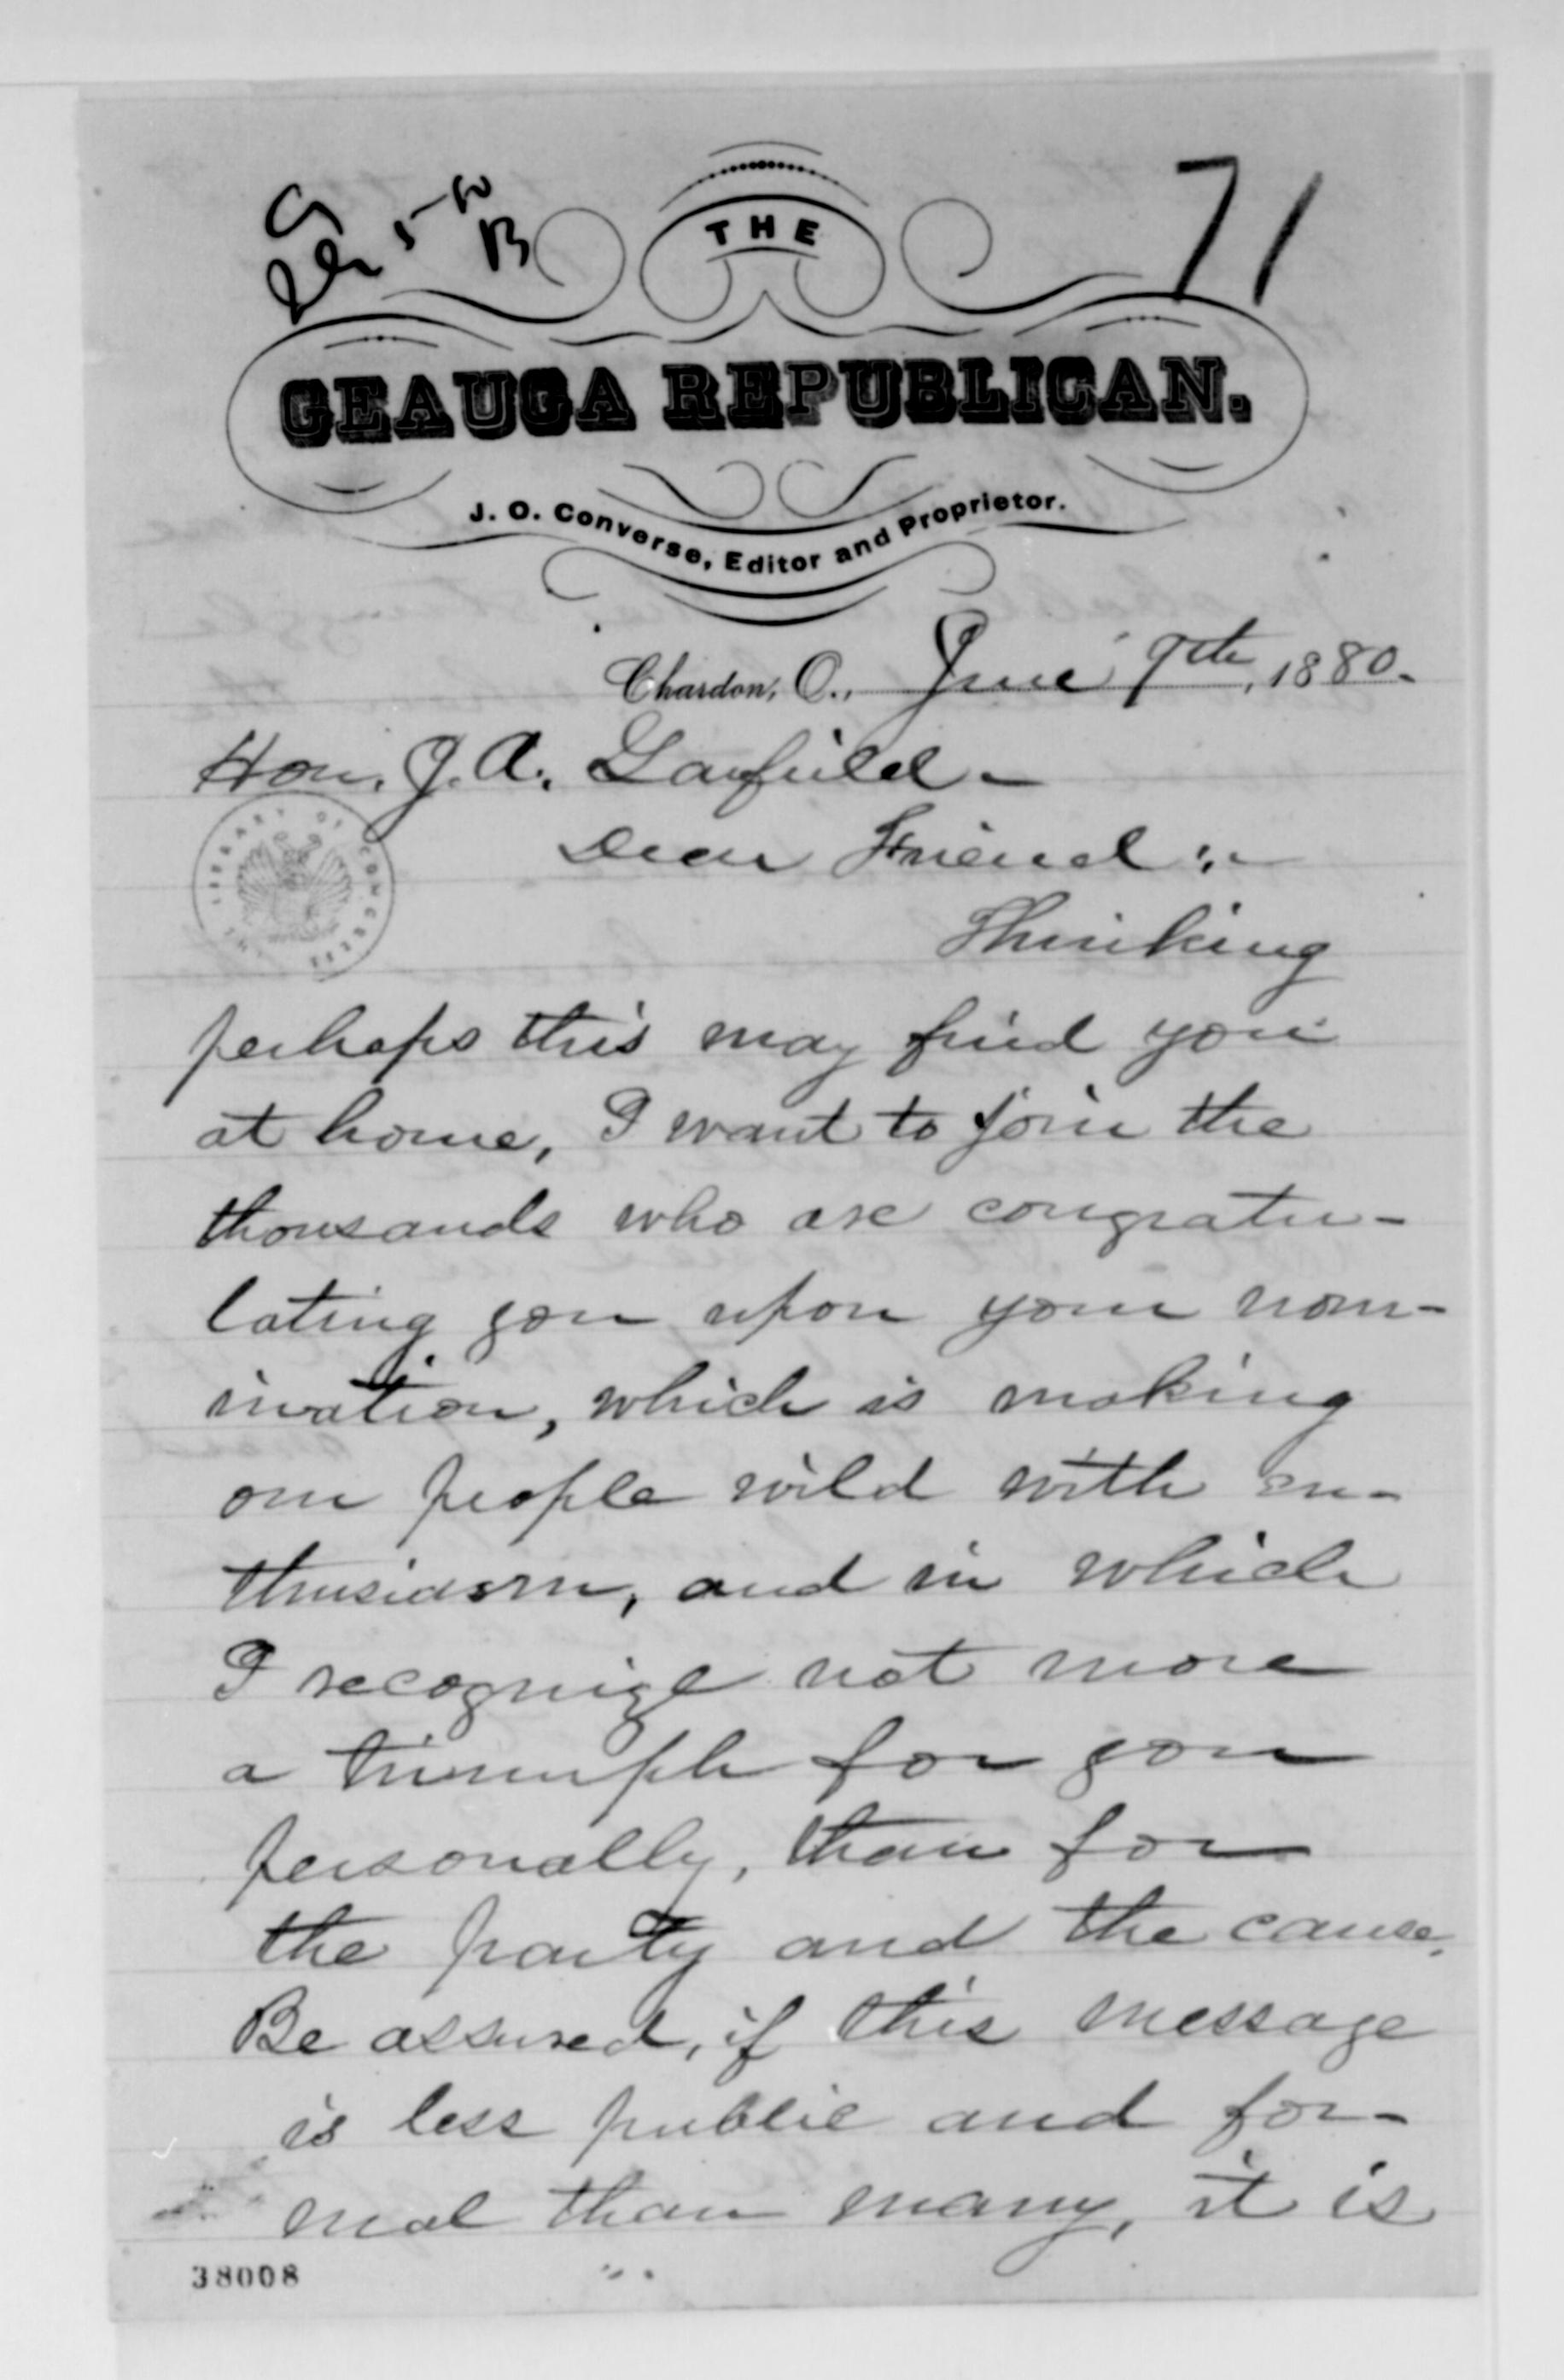 71
THE
GEAUGA REPUBLICAN.
J. O. Converse, Editor and Proprietor.
Chardon, O., June 9th, 1880.
Hon. J. A. Garfield -
Dear Friend :-
Thinking
perhaps this may find you
at home, I want to join the
thousands who are congratu-
lating you upon your nom-
ination, which is making
our people wild with en-
thusiasm, and in which
I recognize not more
a triumph for you
personally, than for
the party and the cause.
Be assured, if this message
is less public and for-
mal than many, it is
38008
THE LIBRARY OF CONGRESS